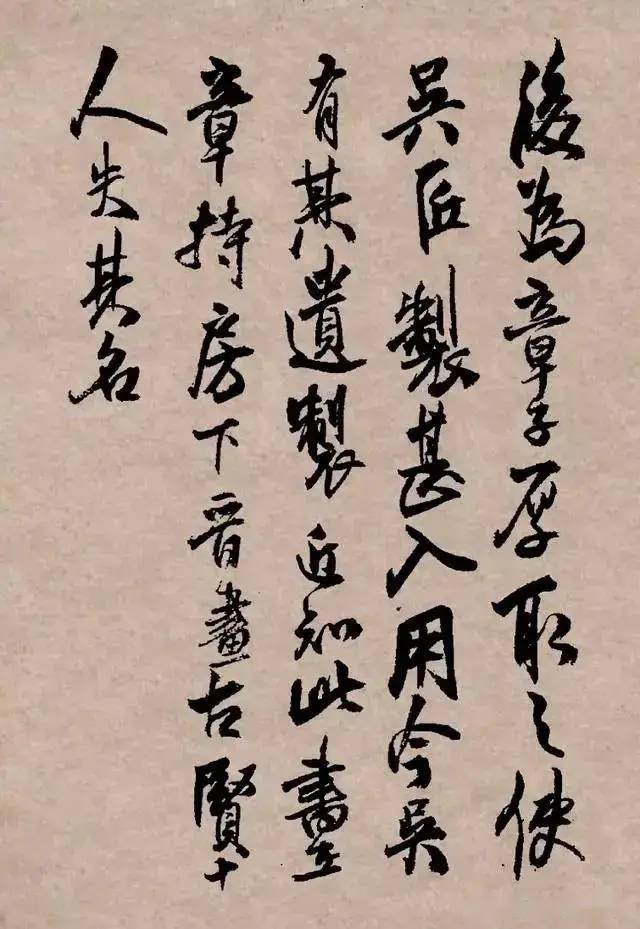 後為章子厚取之使
吳匠製甚入用今吳
有其遺製近知此書在
章持房下晉畫古賢十
人失其名